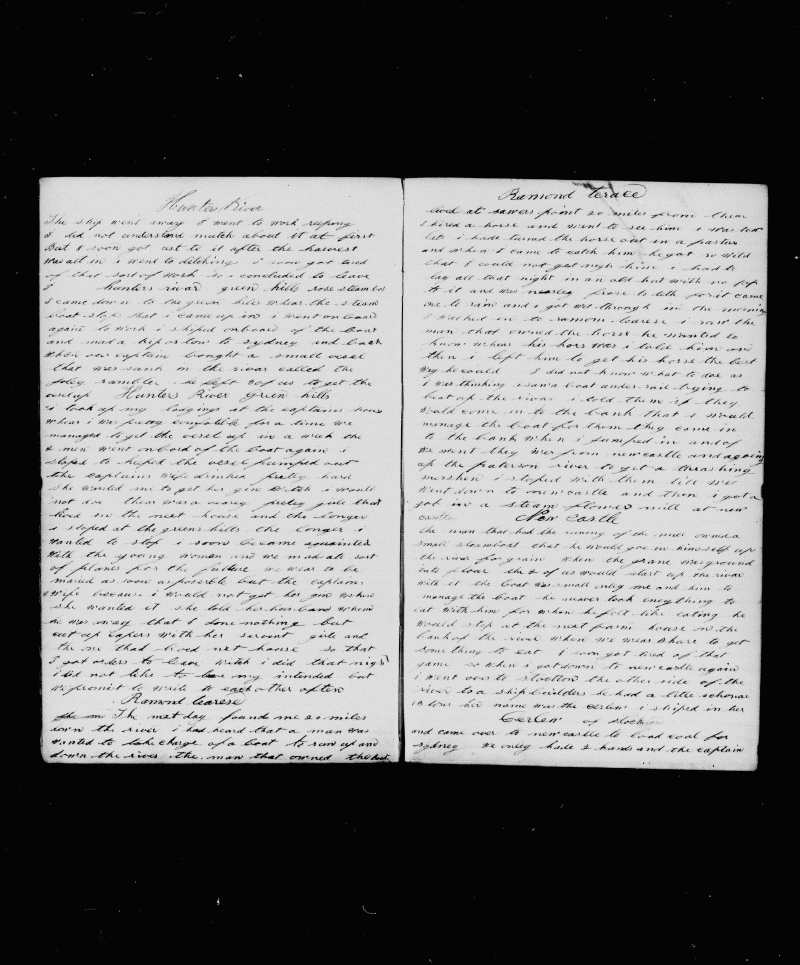 Hunters River
The ship went away I went to work reeping
I did not understand mutch about it at first
But I soon got ust to it after the harvest
was all in i went to ditching I soon got tired
of that sort of work so i concluded to leave
I hunters rivar green hills rose steamboat
I came down to the green hiles whear the steam
boat stops that i came up in i went on board
again to work i shiped onboard of the boat
and mad a trip or tow to sydney and back
when our captain bought a small vesel
that was sunk in the rivar called the
joley rambler he left of us to get the
vesel up Hunters River green hills
i took up my lodgings at the captains hous
whear i was pretty comfotible for a time we
managed to get the vesel up in a week the
2 men went onbord of the boat again i
stoped to keped the vesel pumped out
the captains wife drinked pretty hard
she wanted me to get her gin witch i would
not do thear was a vearey pretey girle that
lived in the next house and the longer
i stoped at the greens hills the longer i
wanted to stop i soon became aquainted
with the young woman and we mad all sort
of planes for the future we wear to be
maried as soon as posible but the captains
wife because i would not get her gin when
she wanted it she told her husband when
he was away that I done nothing but
cut up capers with her servent girle and
the one that lived next house so that
I got orders to leave witch i did that night
i did not like to leave my intended but
we promist to write to each other often
Ramond tearese
The next day found me 20 miles
down the river i had heard that a man was
wanted to take charge of a boat to run up and
down the river the man that owned the boat
Ramond terace
lived at sawers point 20 miles from thear
I hired a horse and went to see him i was
late i hade turned the horse out in a pastur
and when I came to catch him he got so wild
that I could not get nigh him i had to
lay all that night in an old hut with no
to it and was nearley froze to deth for it came
one to rain and i got wet through in the morning
I walked in to ramon tearese i saw the
man that owned the horse he wanted to
know whear his hors was i told him and
then i left him to get his horse the best
way he could I did not know what to doe as
I was thinking i saw a boat under sail trying to
beat up the rivar i told them if they
would come in to the bank that i would
manage the boat for them they came in
to the bank when i jumped in and of
we went they wer from newcastle and agoing
up the paterson river to get a thrashing
mershen i stoped with them till we
went down to newcastle and then i got a
job in a steam flower mill at new
castle New Castle
the man that had the runing of the mill owned a
small steamboat that he would goe in himself up
the river for grain when the grane was ground
into flour the 2 of us would start up the rivar
with it the boat was small onley me and him to
manage the boat he never took eneything to
eat with him for when he felt like eating he
would stop at the next farm house on the
bank of the river when we wear shure to get
something to eat I soon got tired of that
game so when i got down to newcastle again
i went over to stoctton the other side of the
river to a ship builders he had a little schoner
in tow her name was the Cerlew i shiped in her
Cerlew of stockton
and came over to newcastle to load coal for
sydney we onley hade 2 hands and the captain